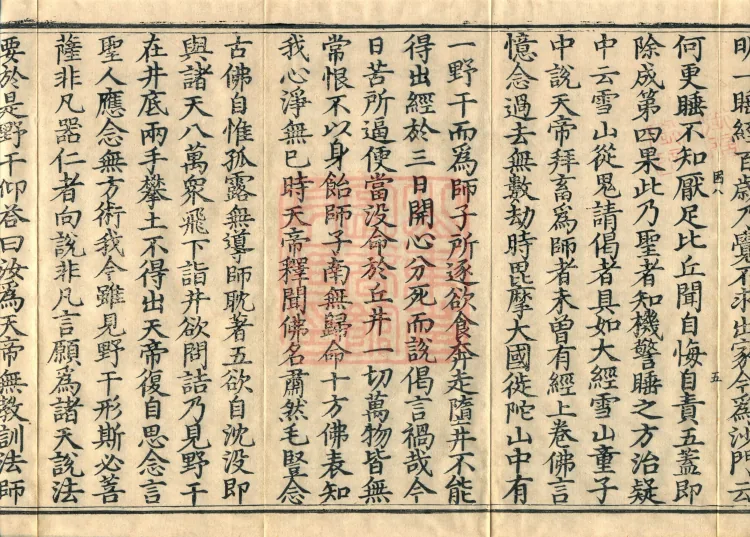 明一睡經百歲乃覺不求出家今爲沙門云
五
何更睡不知厭足比丘聞自悔自責五蓋即
除成第四果此乃聖者知機警睡之方治疑
中云雪山從鬼請偈者具如大經雪山童子
中說天帝拜畜爲師者未曾有經上卷佛言
憶念過去無數劫時毘摩大國徙陀山中有
一野干而爲師子所逐欲食奔走墮井不能
得出經於三日開心分死而說偈言禍哉今
日苦所逼便當沒命於丘井一切萬物皆無
常恨不以身飴師子南無歸命十方佛表知
我心淨無已時天帝釋聞佛名肅然毛豎念
古佛自惟孤露無導師耽著五欲自沈沒即
與諸天八萬衆飛下詣井欲問詰乃見野干
在井底兩手攀土不得出天帝復自思念言
聖人應念無方術我今雖見野干形斯必菩
薩非凡器仁者向說非凡言願爲諸天說法
要於是野干仰答曰汝爲天帝無教訓法師